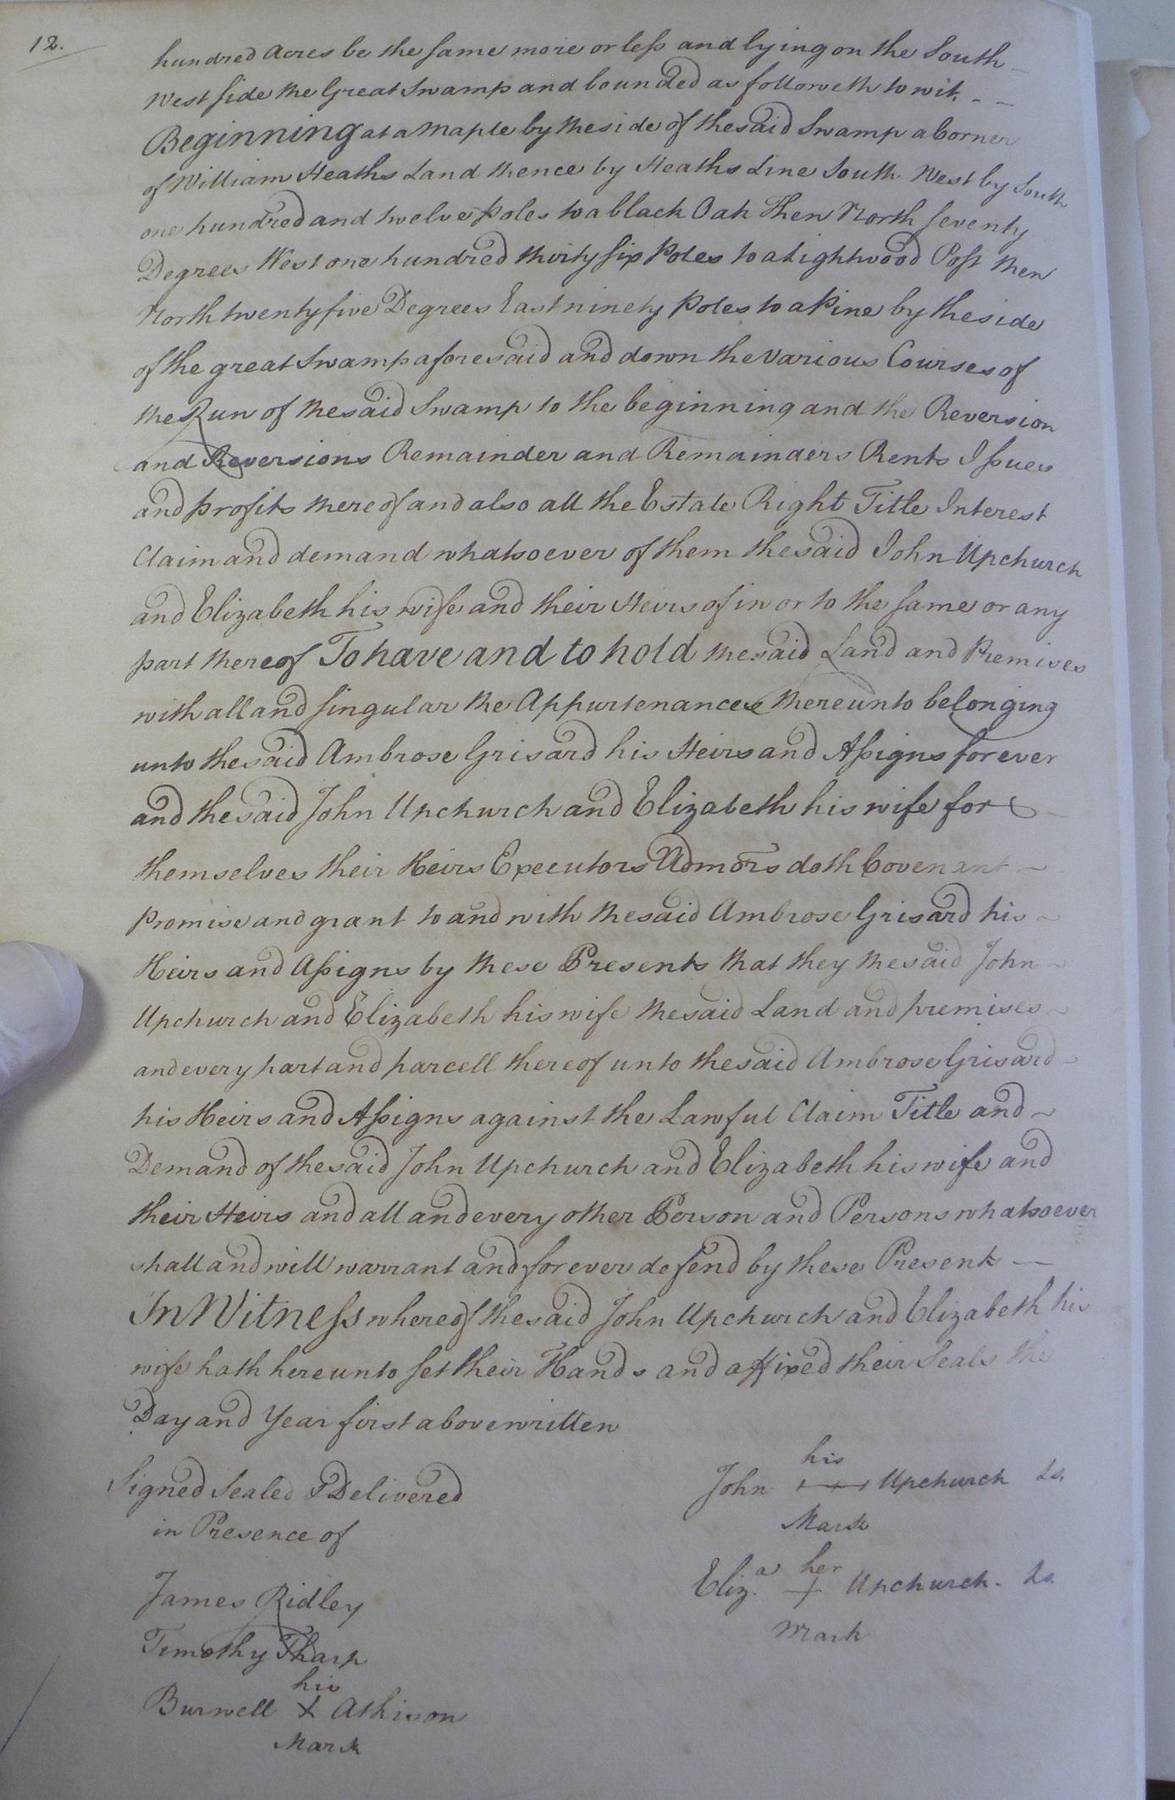 12.
hundred Acres be the same more or less and lying on the South
West side the Great Swamp and bounded as followeth to wit.
Beginning at a Maple by the side of the said Swamp a Corner
of William Heaths Land thence by Heaths Line South West by South
one hundred and twelve Poles to a black Oak Then North seventy
Degrees West one hundred thirty six Poles to a Lightwood Post then
North twenty five Degrees East ninety Poles to a Pine by the side
of the great Swamp aforesaid and down the various Courses of
the Run of the said Swamp to the beginning and the Reversion
and Reversions Remainder and Remainders Rents Issues
and profits thereof and also all the Estate Right Title Interest
Claim and demand whatsoever of them the said John Upchurch
and Elizabeth his wife and their Heirs of in or to the same or any
part thereof To have and to hold the said Land and Premises
with all and singular the Appurtenances thereunto belonging
unto the said Ambrose Grisard his Heirs and Assigns forever
and the said John Upchurch and Elizabeth his wife for
themselves their Heirs Executors Admors doth Covenant
Promise and grant to and with the said Ambrose Grisard his
Heirs and Assigns by these Presents that they the said John
Upchurch and Elizabeth his wife the said Land and premises
and every part and parcell thereof unto the said Ambrose Grisard
his Heirs and Assigns against the Lawful Claim Title and
Demand of the said John Upchurch and Elizabeth his wife and
their Heirs and all and every other Person and Persons whatsoever
shall and will warrant and forever defend by these Presents
In Witness whereof the said John Upchurch and Elizabeth his
wife hath hereunto set their Hands and affixed their Seals the
Day and Year first above written
Signed Sealed & Delivered
in Presence of
James Ridley
Timothy Tharp
his
Burwell X Atkison
Mark
his
John Upchurch Ls.
Mark
her
Eliz.a + Upchurch. Ls.
Mark